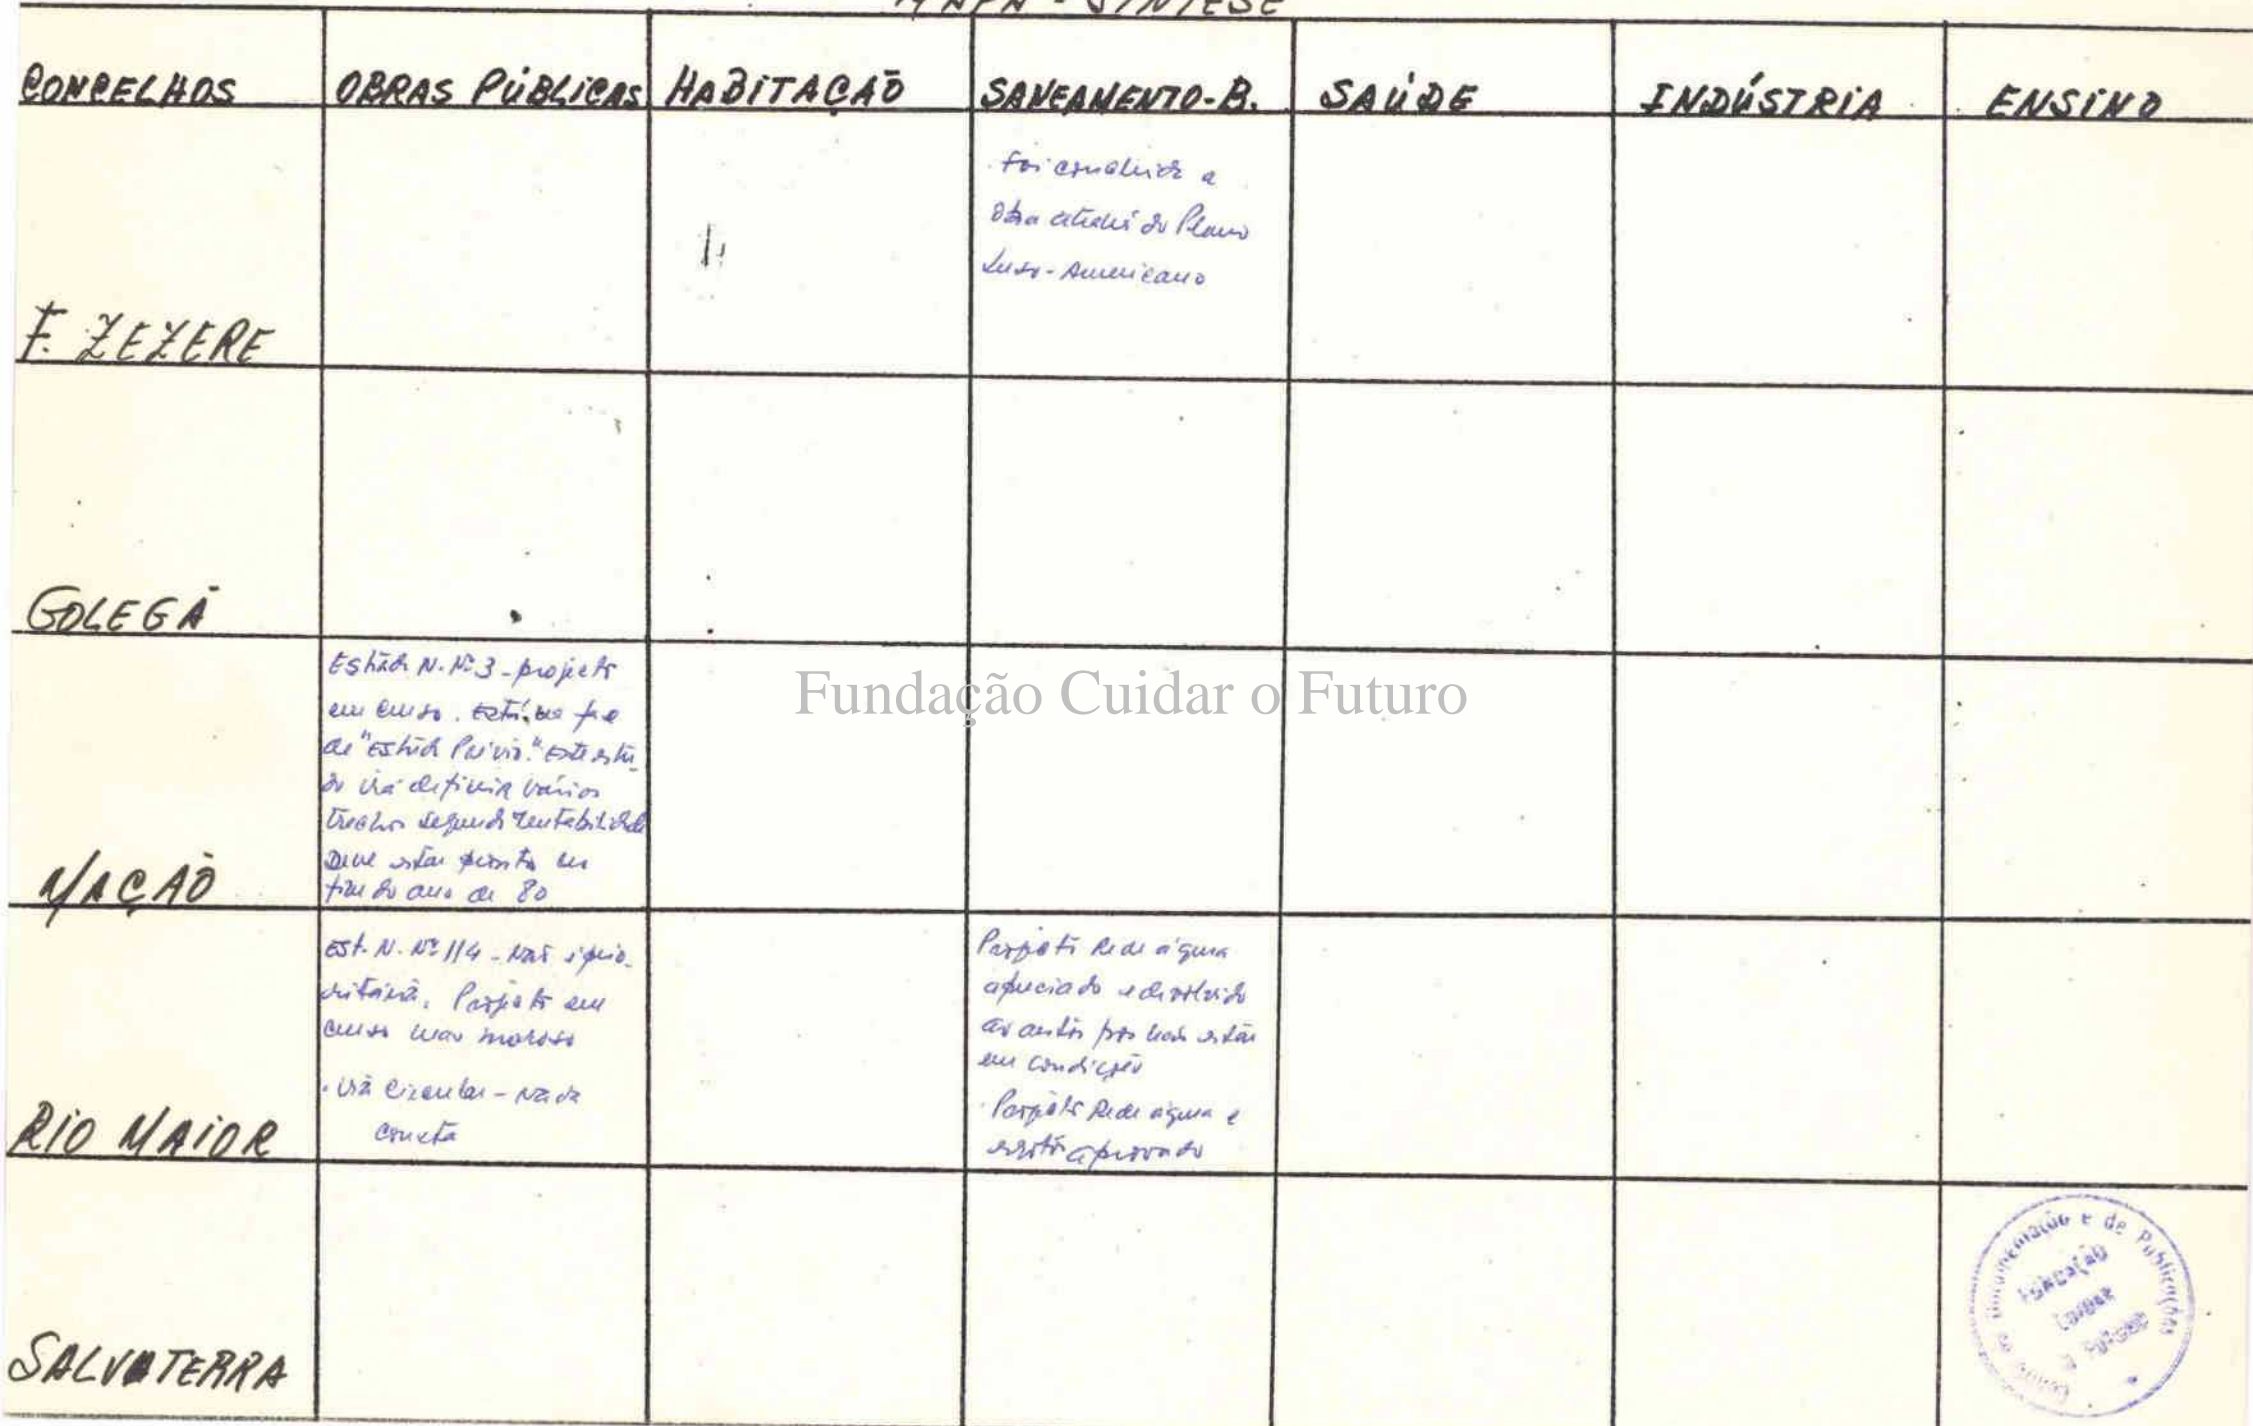 MAPA - SÍNTESE
CONCELHOS OBRAS PÚBLICAS HABITAÇÃO SANEAMENTO-B. SAÚDE INDÚSTRIA ENSINO
Foi concluida a
obra através do Plano
Luso-Americano
F. ZEZERE
GOLEGÃ
Fundação Cuidar o Futuro
Estrada N. Nº 3 - projeto
em curso. Está na fase
de "Estudo Prévio." Este estu-
do irá definir vários
trechos segundo rentabilidade
Deve estar pronto em
fim do ano de 80
MAÇÃO
Est. N. Nº 114 - Não é prio-
ritária. Projeto em
curso mas moroso
. Via Circular - Nada
consta
Projeto Rede água
apreciado e devolvido
ao autor por não estar
em condições
. Projeto Rede água e
esgoto aprovado
RIO MAIOR
SALVATERRA
Centro de Documentação e de Publicações
Fundação
Cuidar
o Futuro